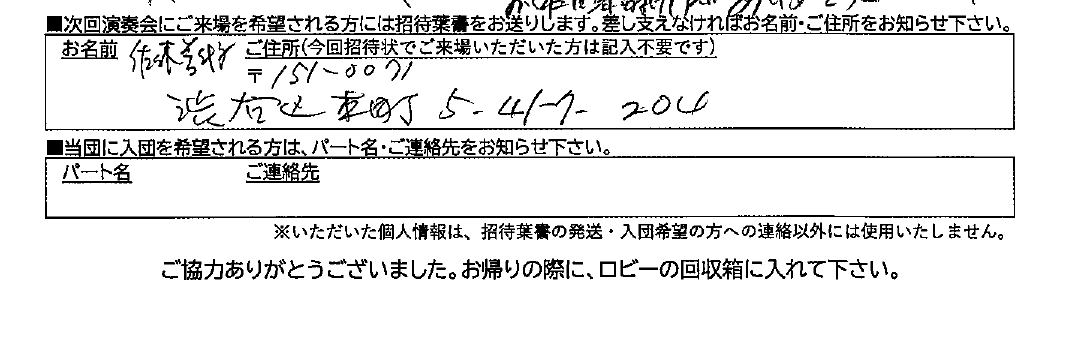 ■次回演奏会にご来場を希望される方には招待葉書をお送りします。差し支えなければお名前・ご住所をお知らせ下さい。
お名前 佐 ご住所(今回招待状でご来場いただいた方は記入不要です)
〒151-0071
渋谷区本町5-41-7-204
■当団に入団を希望される方は、パート名・ご連絡先をお知らせ下さい。
パート名 ご連絡先
※いただいた個人情報は、招待葉書の発送・入団希望の方への連絡以外には使用いたしません。
ご協力ありがとうございました。お帰りの際に、ロビーの回収箱に入れて下さい。